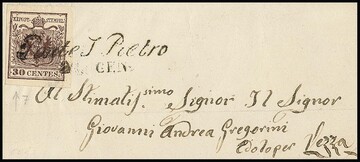 KREUZER-STEMPEL
30 CENTES
Ponte S. Pietro
GEN
Al Stimatis.simo Signor Il Signor
Giovanni Andrea Gregorini
Edolo per Vezza